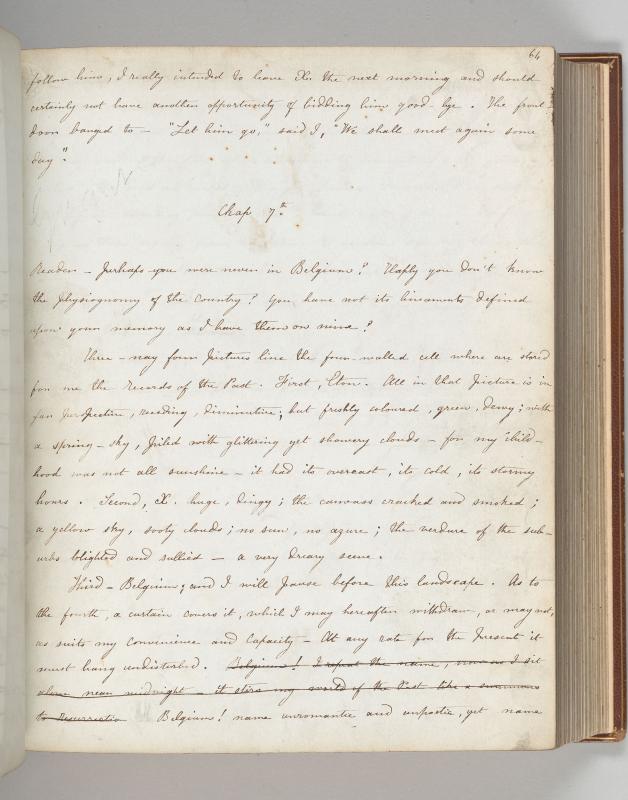 64
follow him, I really intended to leave X. the next morning and should
certainly not have another opportunity of bidding him good-bye. The front
door banged to — "Let him go," said I, "We shall meet again some
day".
Chap 7th.
Reader — perhaps you were never in Belgium? Haply you don't know
the physiognomy of the Country? You have not its lineaments defined
upon your memory as I have them on mine?
Three — nay four pictures line the four-walled cell where are stored
for me the records of the Past. First, Eton. All in that picture is in
far perspective, receding, diminutive; but freshly coloured, green, dewy; with
a spring-sky, piled with glittering yet showery clouds — for my child-
hood was not all sunshine — it had its overcast, its cold, its stormy
hours. Second, X. huge, dingy; the canvass cracked and smoked;
a yellow sky, sooty clouds; no sun, no azure; the verdure of the sub-
urbs blighted and sullied — a very dreary scene.
Third — Belgium; and I will pause before this landscape. As to
the fourth, a curtain covers it, which I may hereafter withdraw, or may not,
as suits my convenience and capacity — At any rate for the present it
must hang undisturbed. Belgium! I repeat the name, now as I sit
alone near midnight — it stirs my world of the Past like a summons
to resurrection Belgium! name unromantic and unpoetic, yet name